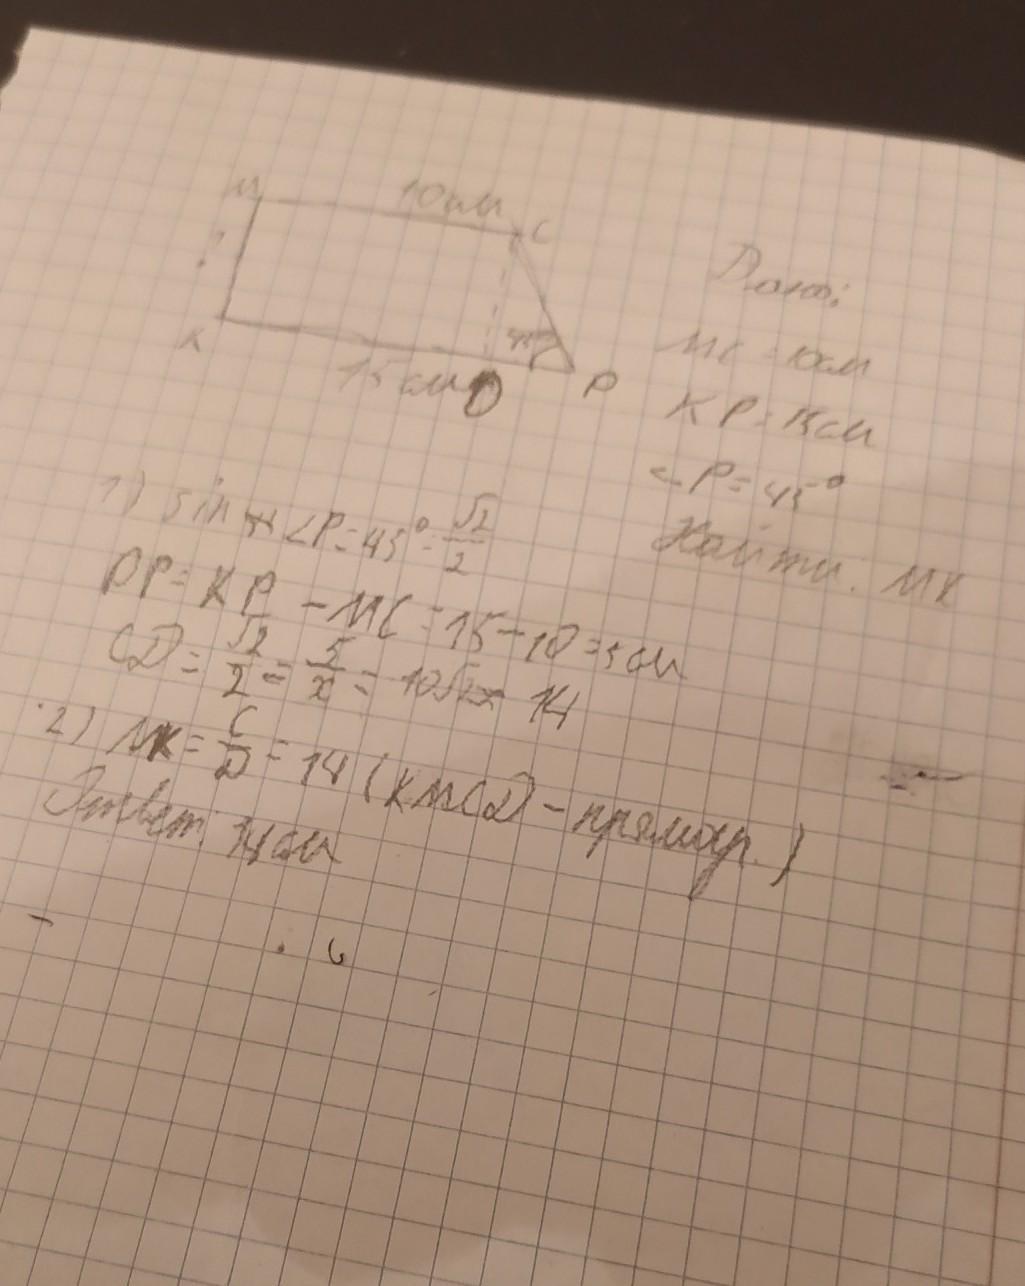 M 10 см C
?
K 15 см D 45° P
Дано:
MC = 10 см
KP = 15 см
∠P = 45°
Найти: MK
1) sin ∠P = 45° = √2/2
DP = KP - MC = 15 - 10 = 5 см
CD = √2/2 = 5/x = 10√2 = 14
2) MK = C/D = 14 (KMCD - прямоуг.)
Ответ: 14 см